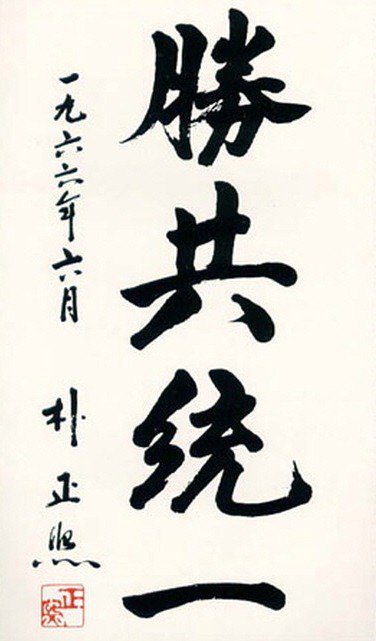 勝共統一
一九六六年六月
朴正熙